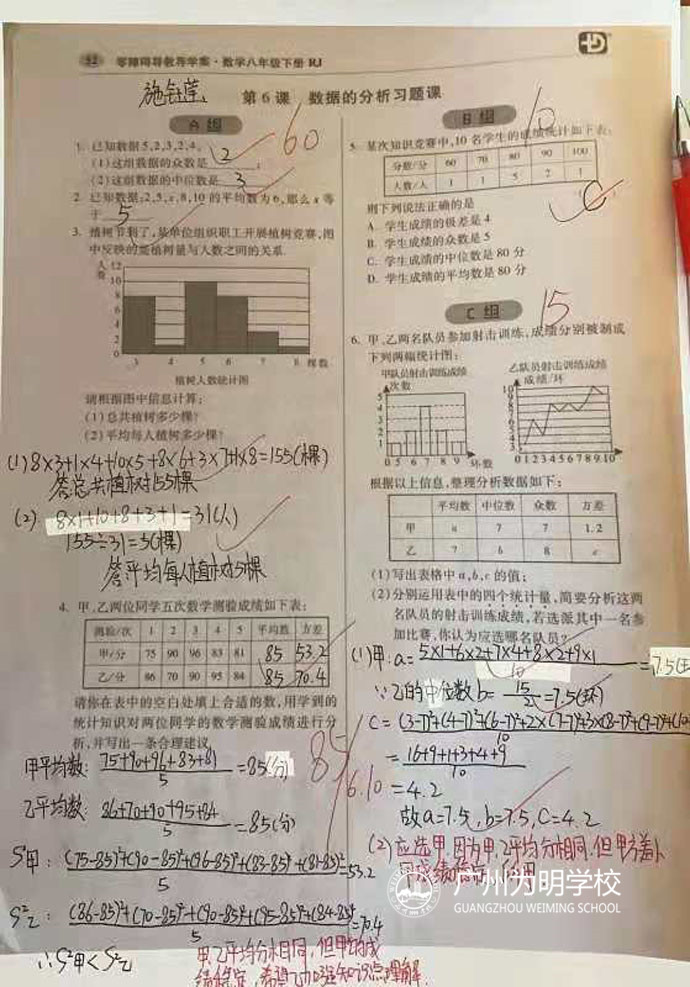 52 零障碍导教导学案·数学八年级下册 RJ
施钰莹
第6课 数据的分析习题课
A 组
60
1. 已知数据5,2,3,2,4。
(1)这组数据的众数是 2 ;
(2)这组数据的中位数是 3
2. 已知数据,2,5,x,8,10的平均数为6,那么x等
于 5
3. 植树节到了,某单位组织职工开展植树竞赛,图
中反映的是植树量与人数之间的关系.
人数
12
10
8
6
4
2
0
3 4 5 6 7 8 棵数
植树人数统计图
请根据图中信息计算:
(1)总共植树多少棵?
(2)平均每人植树多少棵?
(1)8×3+1×4+10×5+8×6+3×7+1×8=155(棵)
答总共植树155棵
(2) 8×1+10+8+3+1=31(人)
155÷31=5(棵)
答平均每人植树5棵
4. 甲,乙两位同学五次数学测验成绩如下表:
测验/次 1 2 3 4 5 平均数 方差
甲/分 75 90 96 83 81 85 53.2
乙/分 86 70 90 95 84 85 70.4
请你在表中的空白处填上合适的数,用学到的
统计知识对两位同学的数学测验成绩进行分
析,并写出一条合理建议
甲平均数: 75+90+96+83+81
5
=85(分)
乙平均数: 86+70+90+95+84
5
=85(分)
S²甲: (75-85)²+(90-85)²+(96-85)²+(83-85)²+(81-85)²
5
=53.2
S²乙: (86-85)²+(70-85)²+(90-85)²+(95-85)²+(84-85)²
5
=70.4
∴S²甲<S²乙
甲乙平均分相同,但甲的成
绩稳定,希望乙加强知识点理解.
85
6.10
B 组
10
5. 某次知识竞赛中,10名学生的成绩统计如下表:
分数/分 60 70 80 90 100
人数/人 1 1 5 2 1
则下列说法正确的是
C
A. 学生成绩的极差是4
B. 学生成绩的众数是5
C. 学生成绩的中位数是80分
D. 学生成绩的平均数是80分
C 组
15
6. 甲,乙两名队员参加射击训练,成绩分别被制成
下列两幅统计图:
甲队员射击训练成绩
次数
5
4
3
2
1
0 5 6 7 8 9 环数
乙队员射击训练成绩
成绩/环
10
9
8
7
6
5
4
3
0 1 2 3 4 5 6 7 8 9 10
根据以上信息,整理分析数据如下:
平均数 中位数 众数 方差
甲 a 7 7 1.2
乙 7 b 8 c
(1)写出表格中a,b,c的值;
(2)分别运用表中的四个统计量,简要分析这两
名队员的射击训练成绩,若选派其中一名参
加比赛,你认为应选哪名队员?
(1)甲: a= 5×1+6×2+7×4+8×2+9×1
10
=7.5(环
∵乙的中位数b= 15
2
=7.5(环)
C= (3-7)²+(4-7)²+(6-7)²+2×(7-7)²+3×(8-7)²+(9-7)²+(10
10
= 16+9+1+3+4+9
10
=4.2
故a=7.5,b=7.5,C=4.2
(2)应选甲,因为甲,乙平均分相同,但甲方差小
广州为明学校
GUANGZHOU WEIMING SCHOOL